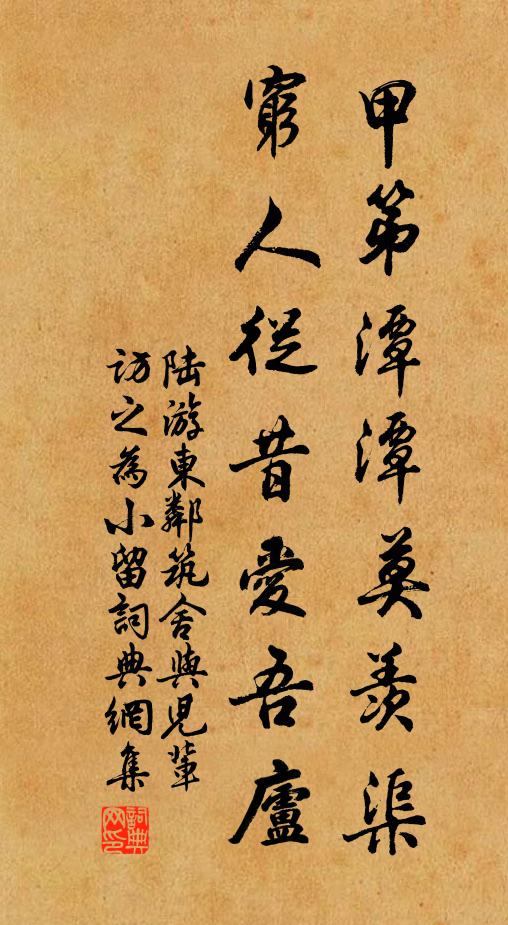 甲第潭潭莫羨渠
窮人從昔愛吾廬
陆游東鄰筑舍與兒輩
訪之為小留詞典網集
詞典网印